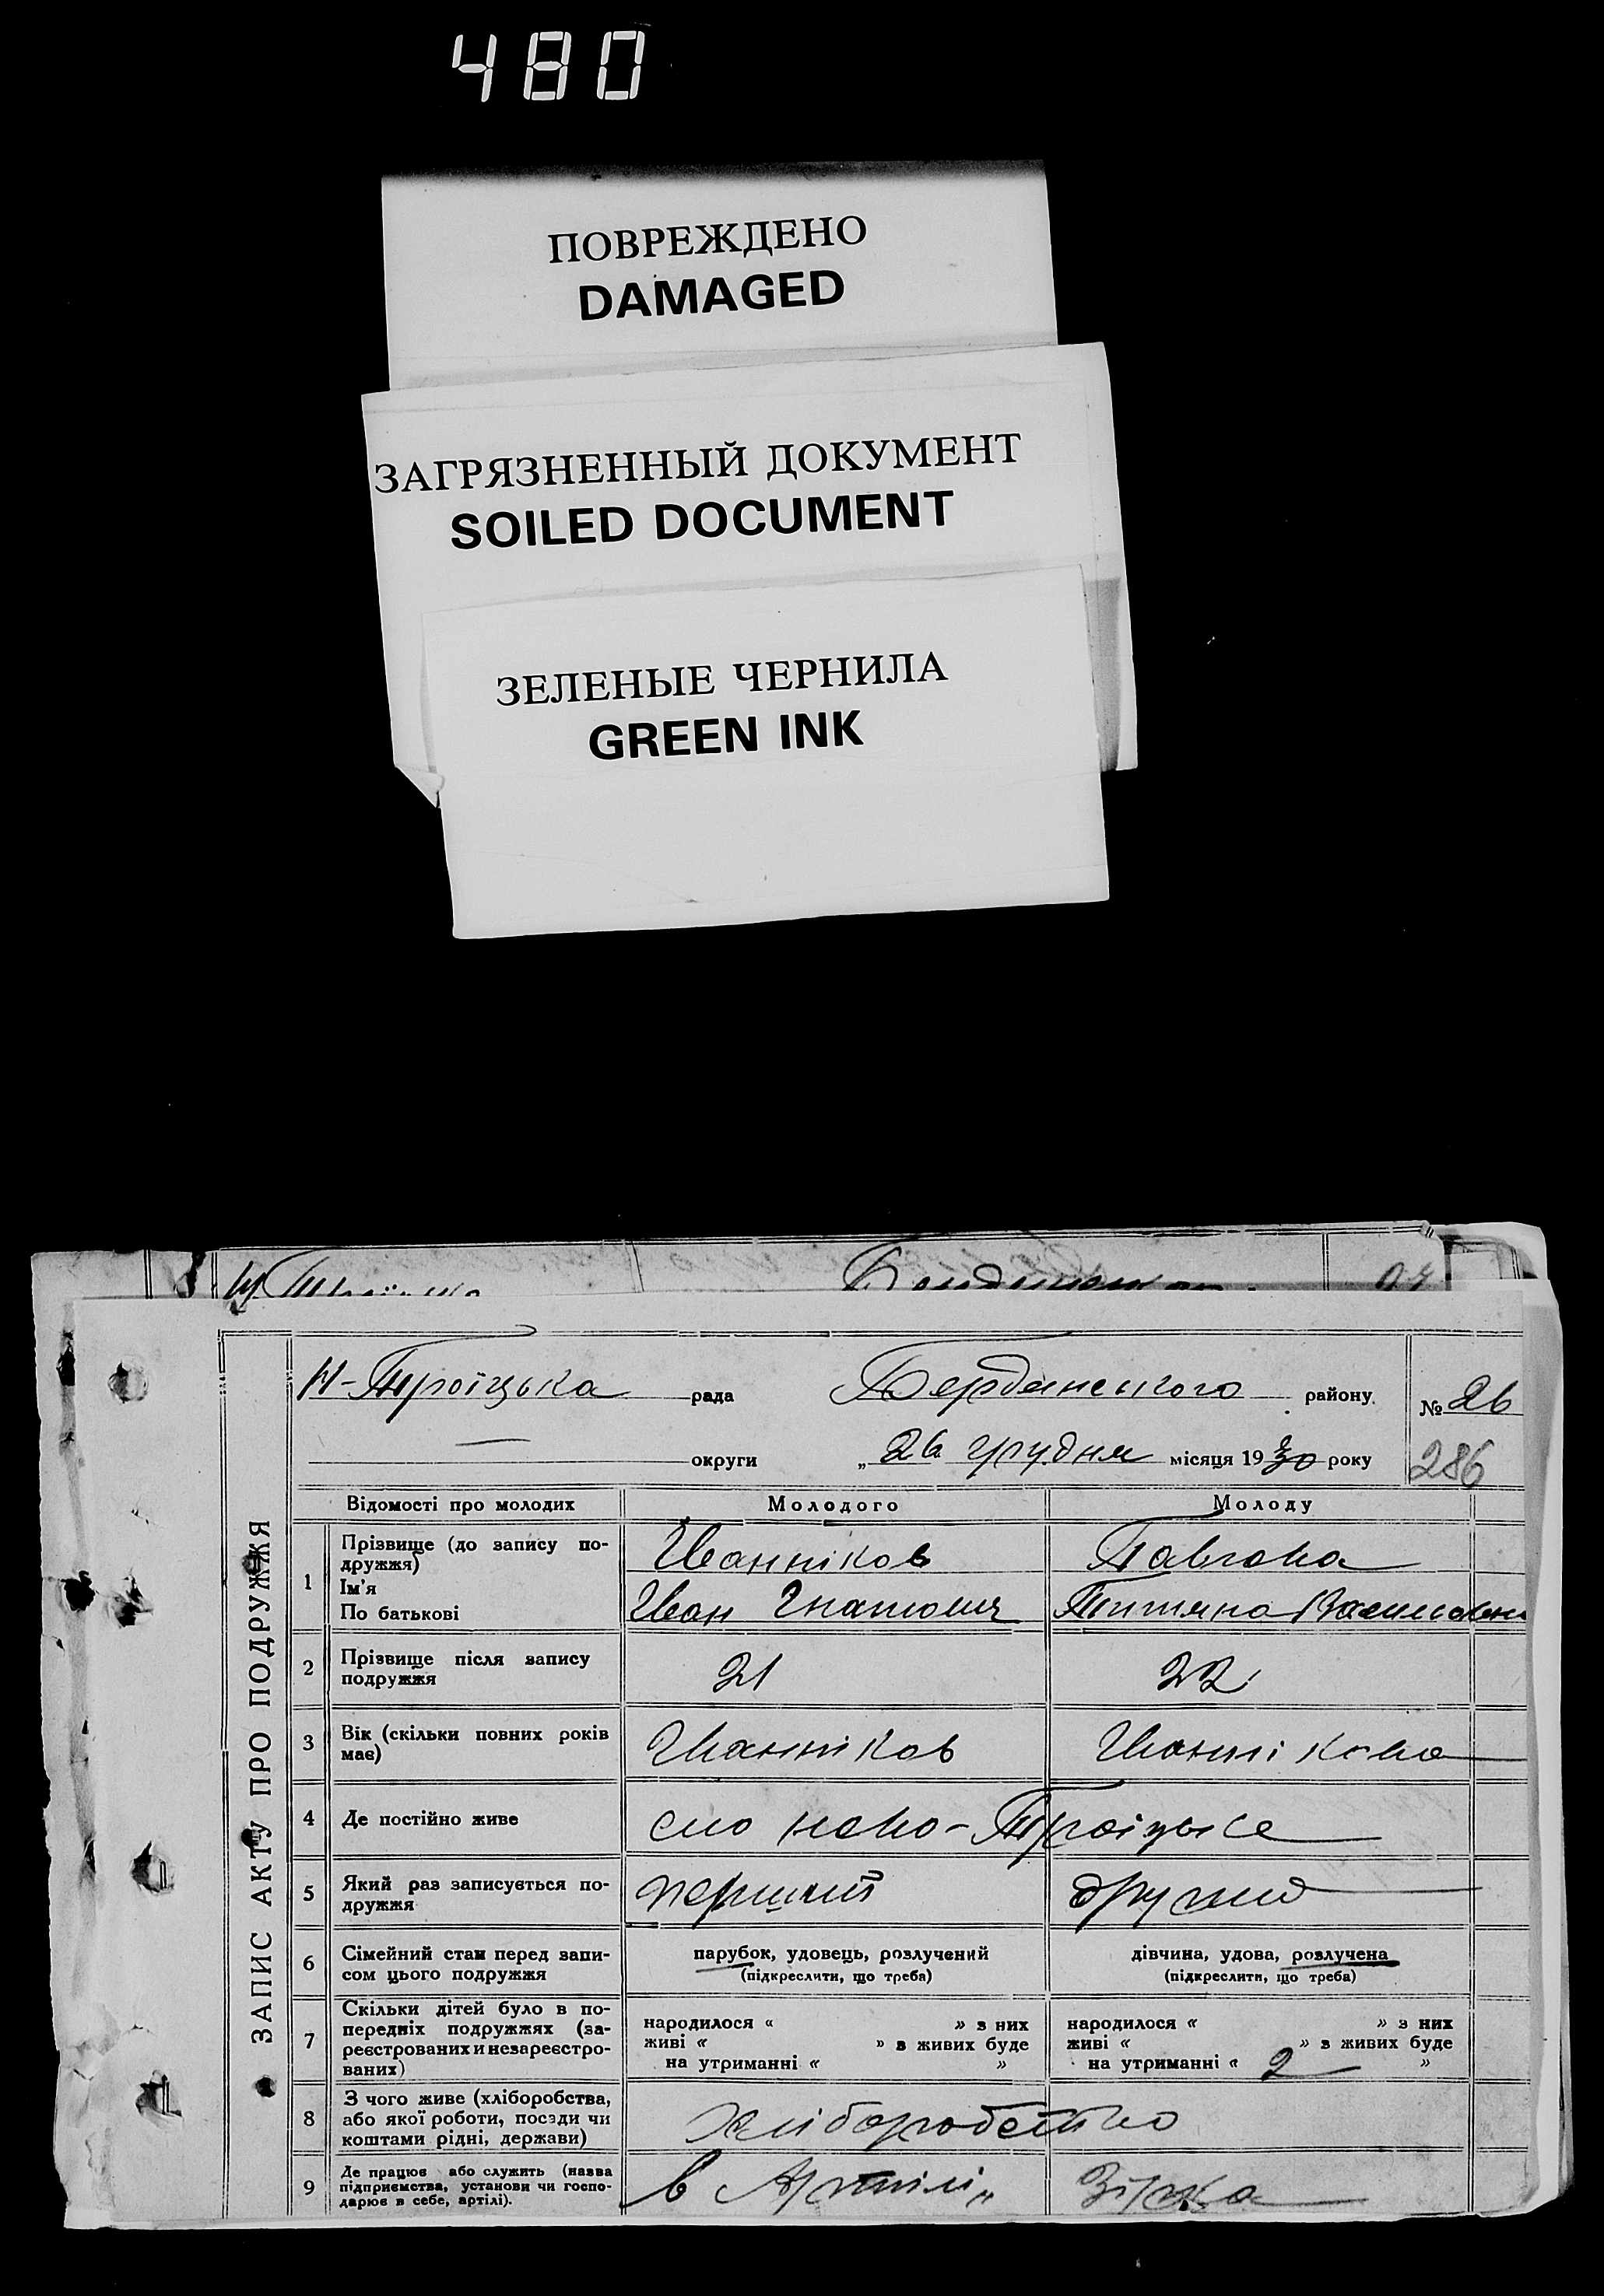 480
ПОВРЕЖДЕНО
DAMAGED
ЗАГРЯЗНЕННЫЙ ДОКУМЕНТ
SOILED DOCUMENT
ЗЕЛЕНЫЕ ЧЕРНИЛА
GREEN INK
ЗАПИС АКТУ ПРО ПОДРУЖЖЯ
Н-Троїцька рада Бердянського району. № 26
— округи „ 26 грудня місяця 1930 року 286
Відомості про молодих Молодого Молоду
1 Прізвище (до запису по-
дружжя) Іванніков
Ім'я
По батькові Іван Гнатович Титяна
2 Прізвище після запису
подружжя 21 22
3 Вік (скільки повних років
має) Іванніков Іваннікова
4 Де постійно живе село Ново-Троіцьке
5 Який раз записується по-
дружжя перший
6 Сімейний стан перед запи-
сом цього подружжя
парубок, удовець, розлучений
(підкреслити, що треба)
дівчина, удова, розлучена
(підкреслити, що треба)
7 Скільки дітей було в по-
передніх подружжях (за-
реєстрованих и незареєстро-
ваних)
народилося « » з них
живі « » в живих буде
на утриманні « »
народилося « » з них
живі « » з живих буде
на утриманні « 2 »
8 З чого живе (хліборобства,
або якої роботи, посади чи
коштами рідні, держави) хліборобство
9 Де працює або служить (назва
підприємства, установи чи госпо-
дарює в себе, артілі). в Артілі „ Зірка